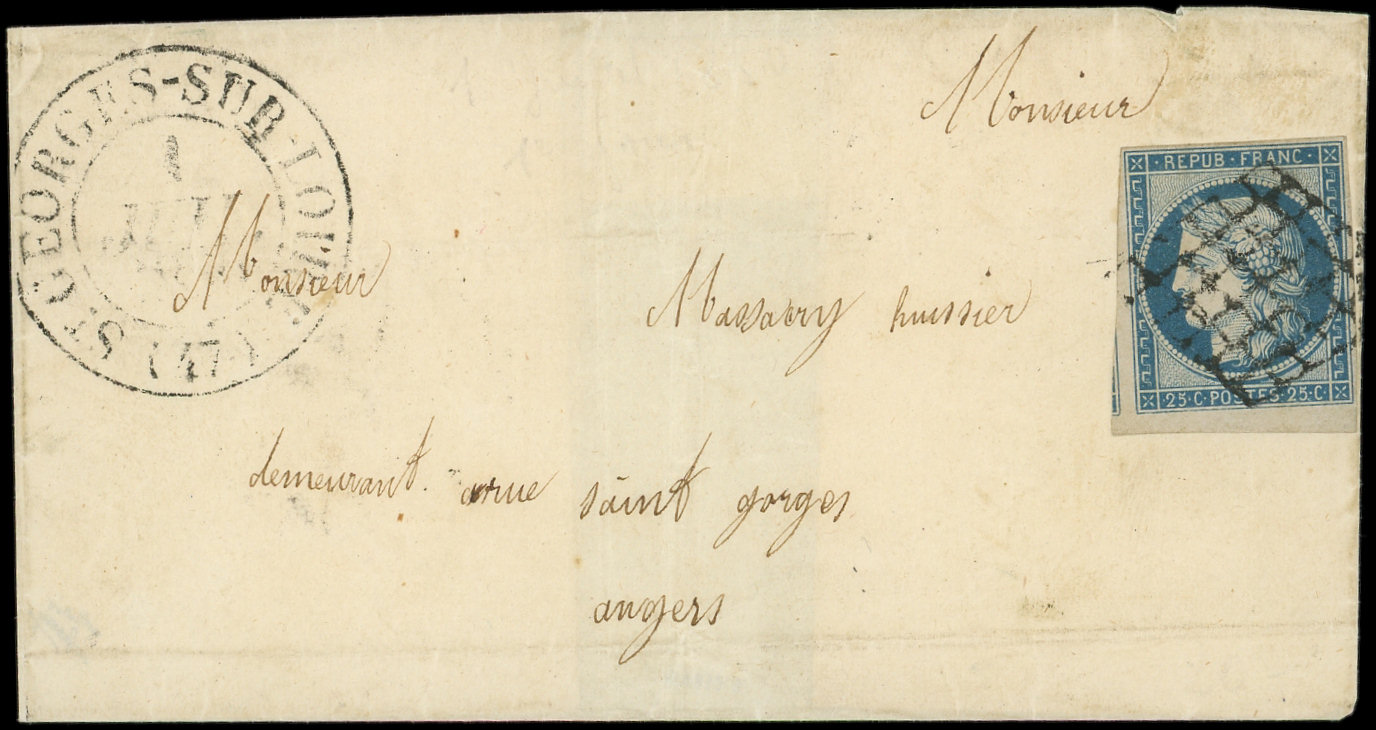 Monsieur
ST GEORGES-SUR-LOIRE (47)
1
JUIL
REPUB · FRANC ·
25 · C · POSTES · 25 · C ·
Monsieur Massatry huissier
demeurant rue saint gorges
angers